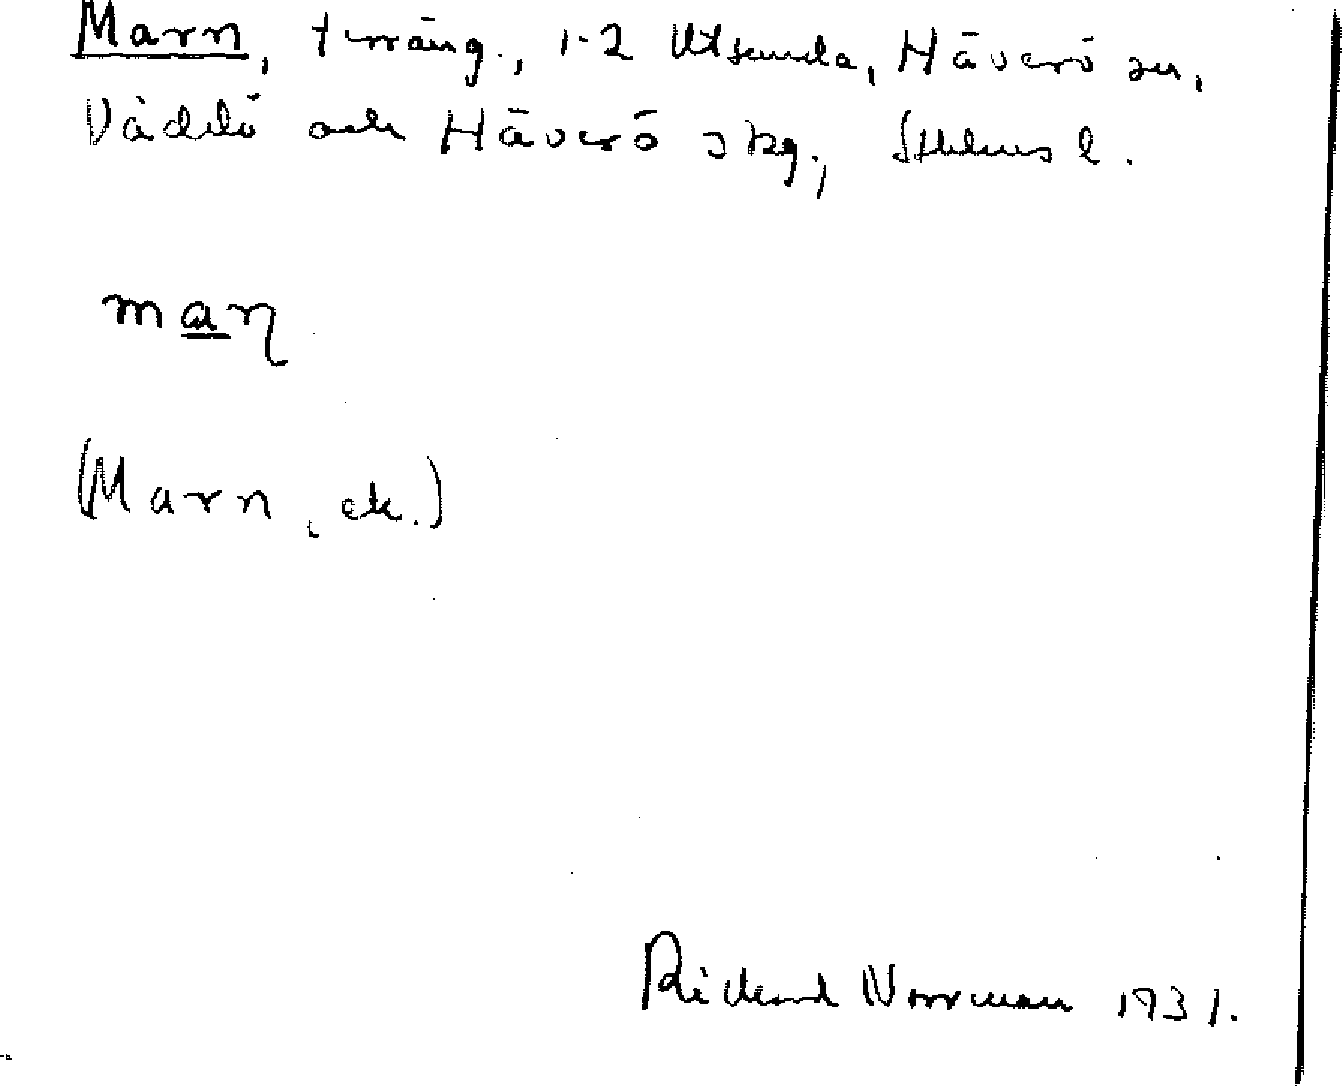 Marn, terräng., 1-2 Utsunda, Häverö sn,
Väddö och Häverö skg., Sthlms l.
maɳ
(Marn, ek.)
Rickard Norrman 1931.